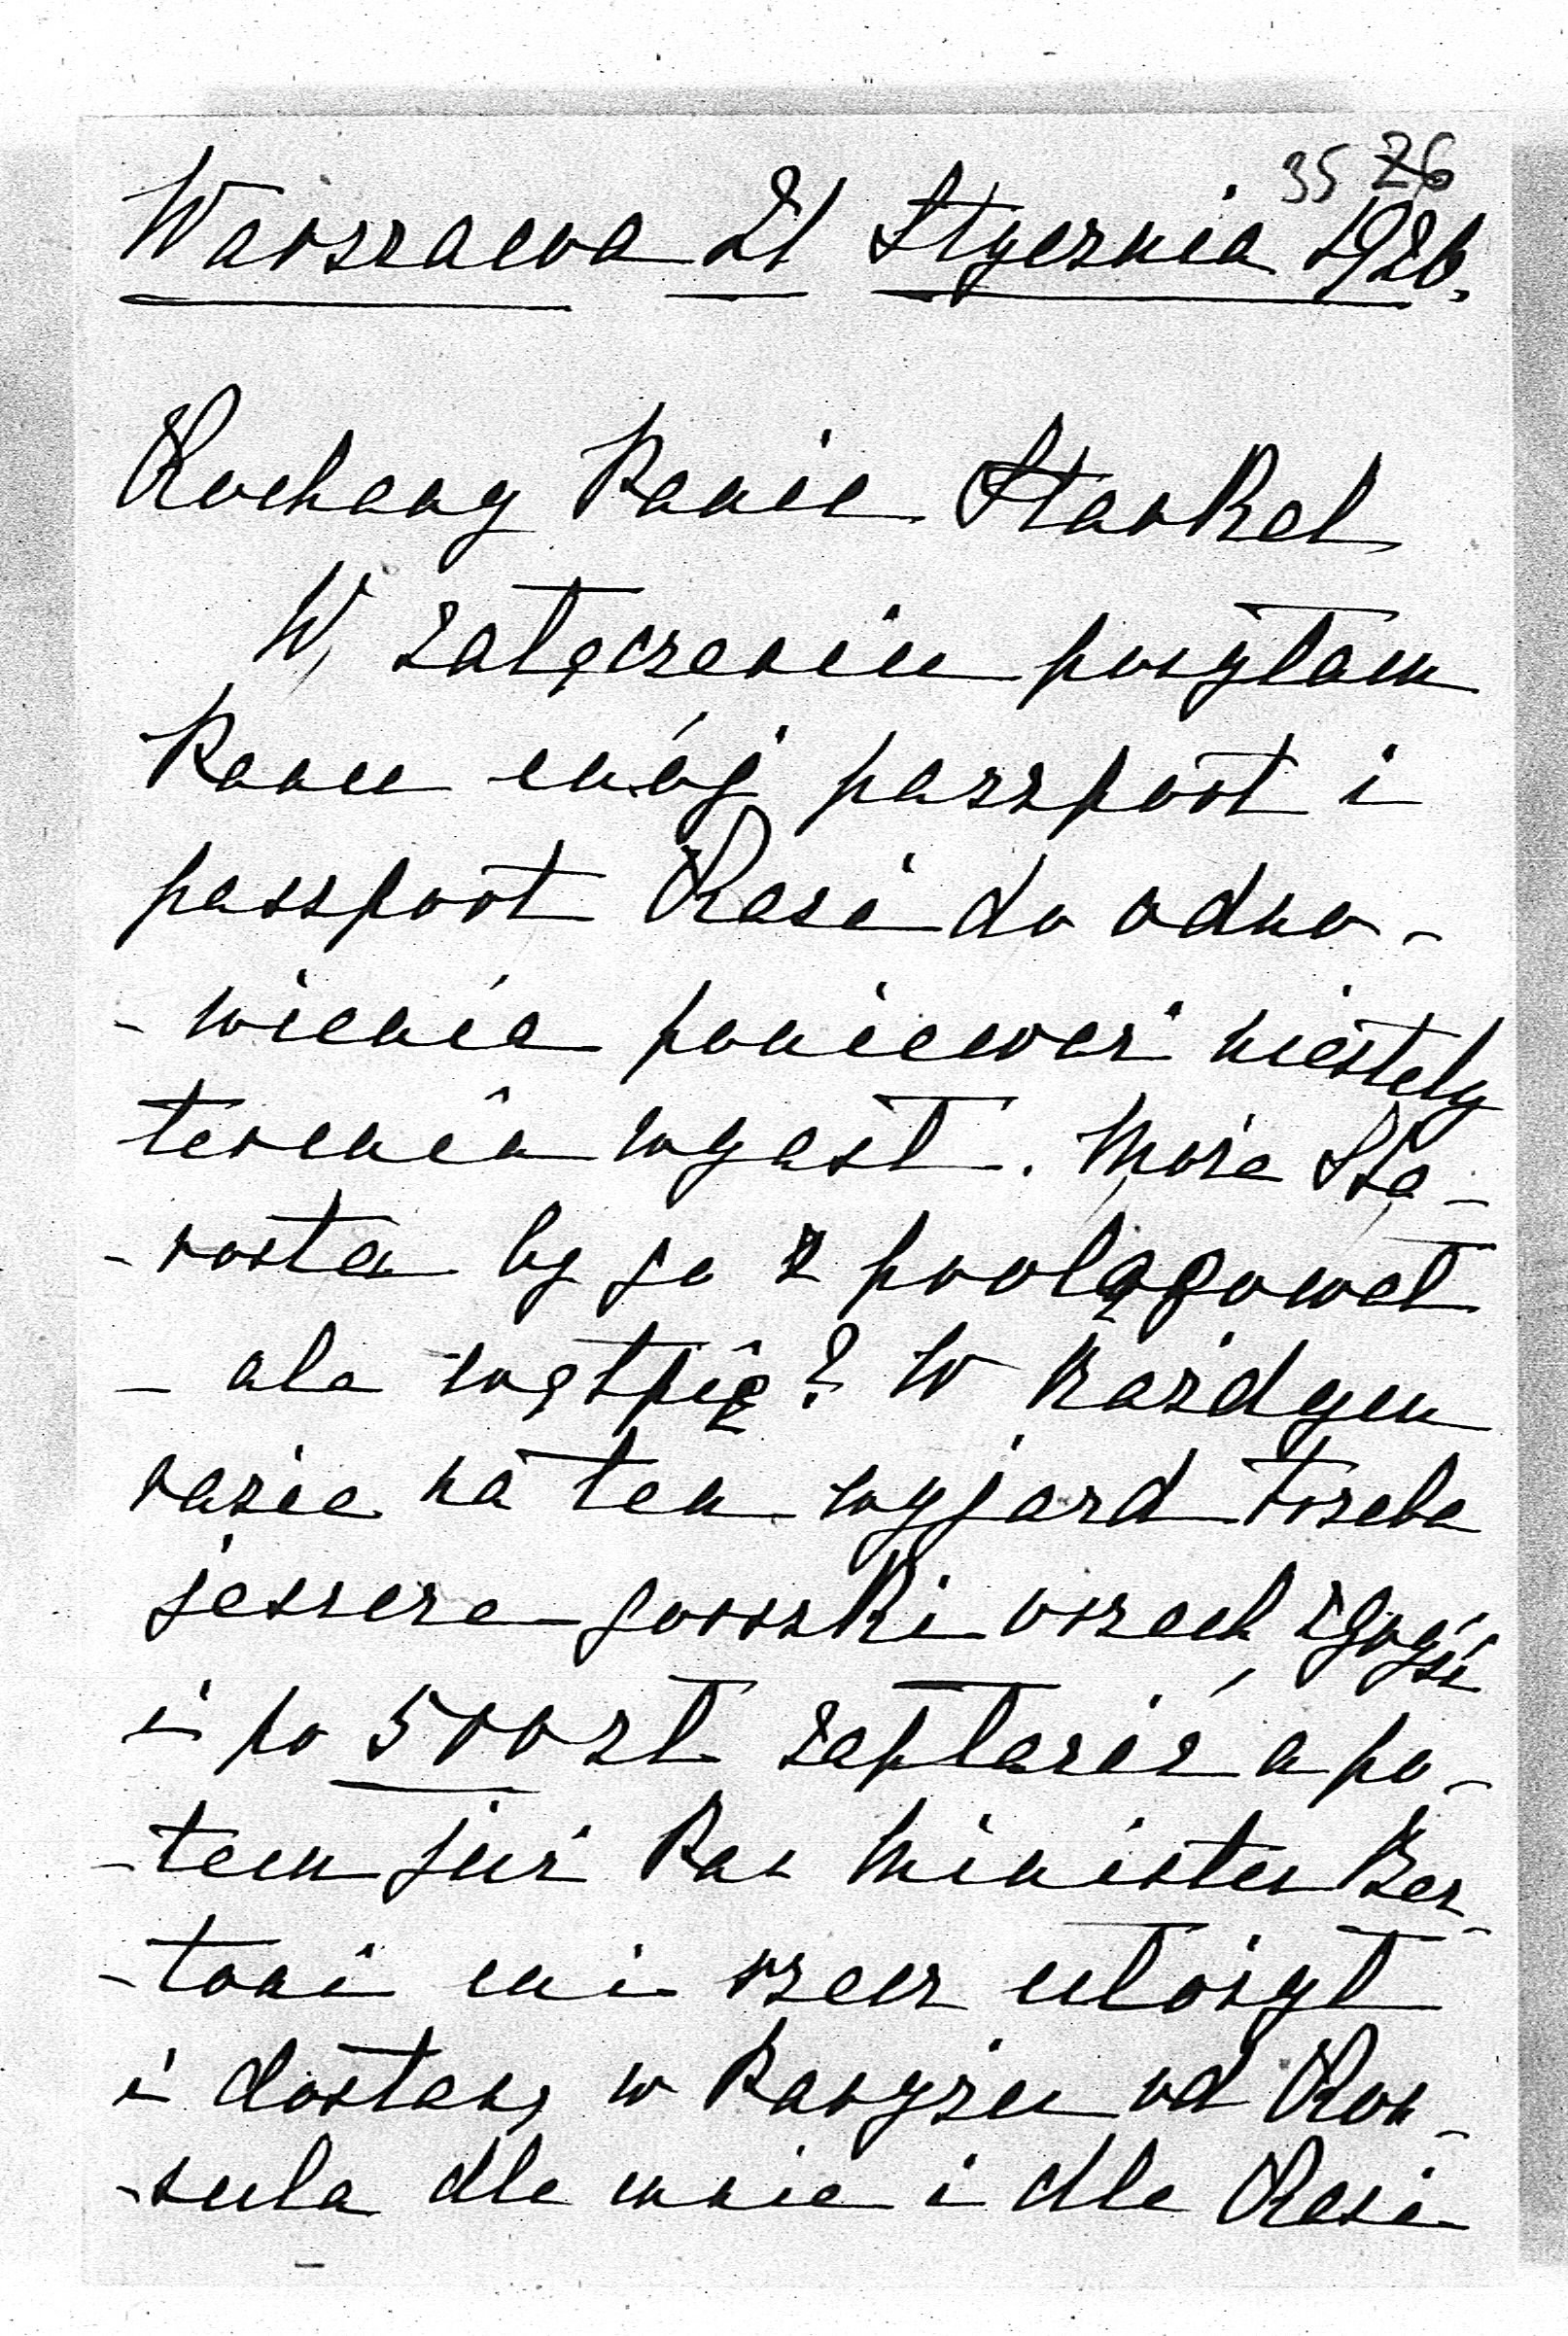 35 26
Warszawa 21 Stycznia 1926.
Kochany Panie Starkel
W załączeniu posyłam
Panu mój paszport i
passport Kasi do odno-
-wienia ponieważ niestety
termin wygasł. Może Sta-
-rosta by go prolągował
- ale wątpię? W każdym
razie na ten wyjazd trzeba
jeszcze gorzki orzech zgryźć
i po 500 zł zapłacić a po-
-tem już Pan Minister Ber-
-toni mi rzecz ułożył
i dostanę w Paryżu od Kon-
-sula dla mnie i dla Kasi